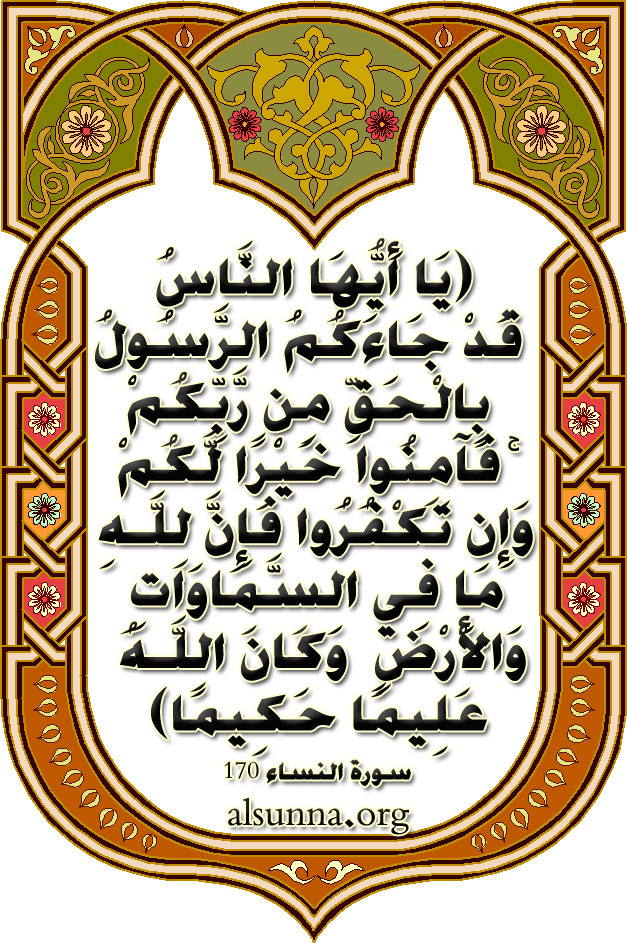 (يَا أَيُّهَا النَّاسُ
قَدْ جَاءَكُمُ الرَّسُولُ
بِالْحَقِّ مِن رَّبِّكُمْ
فَآمِنُوا خَيْرًا لَّكُمْ ۚ
وَإِن تَكْفُرُوا فَإِنَّ لِلَّهِ
مَا فِي السَّمَاوَاتِ
وَالْأَرْضِ وَكَانَ اللَّهُ
عَلِيمًا حَكِيمًا)
سورة النساء 170
alsunna.org